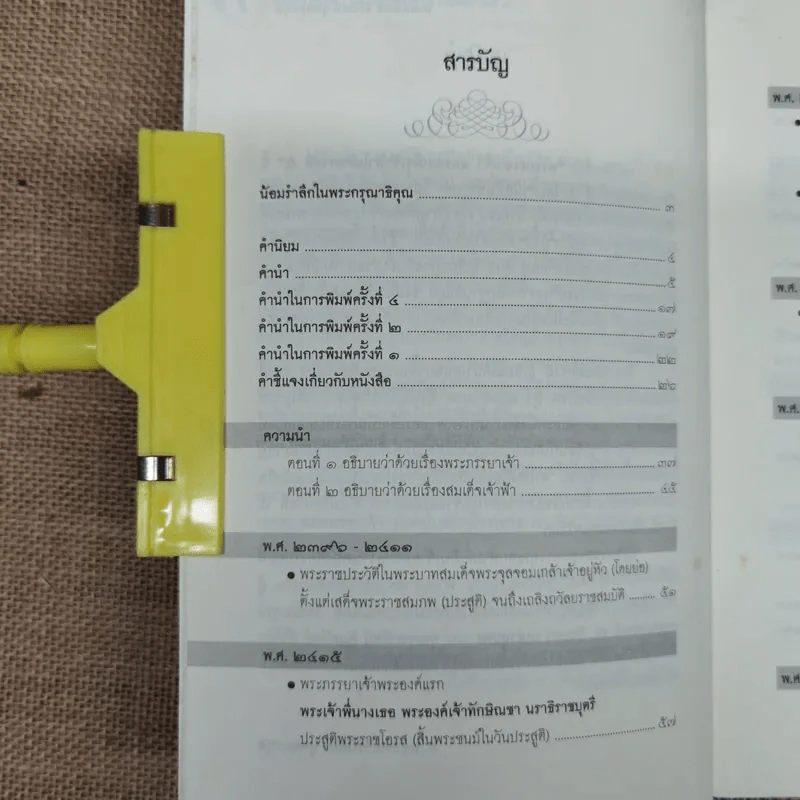 สารบัญ
น้อมรำลึกในพระกรุณาธิคุณ ๓
คำนิยม ๔
คำนำ ๕
คำนำในการพิมพ์ครั้งที่ ๔ ๑๗
คำนำในการพิมพ์ครั้งที่ ๒ ๑๙
คำนำในการพิมพ์ครั้งที่ ๑ ๒๒
คำชี้แจงเกี่ยวกับหนังสือ
ความนำ
ตอนที่ ๑ อธิบายว่าด้วยเรื่องพระภรรยาเจ้า ๓๗
ตอนที่ ๒ อธิบายว่าด้วยเรื่องสมเด็จเจ้าฟ้า ๔๕
พ.ศ. ๒๓๙๖ - ๒๔๑๑
• พระราชประวัติในพระบาทสมเด็จพระจุลจอมเกล้าเจ้าอยู่หัว (โดยย่อ)
ตั้งแต่เสด็จพระราชสมภพ (ประสูติ) จนถึงเถลิงถวัลยราชสมบัติ ๕๑
พ.ศ. ๒๔๑๕
• พระภรรยาเจ้าพระองค์แรก
พระเจ้าพี่นางเธอ พระองค์เจ้าทักษิณชา นราธิราชบุตรี
ประสูติพระราชโอรส (สิ้นพระชนม์ในวันประสูติ) ๕๗
พ.ศ.
พ.ศ.
พ.ศ.
พ.ศ.